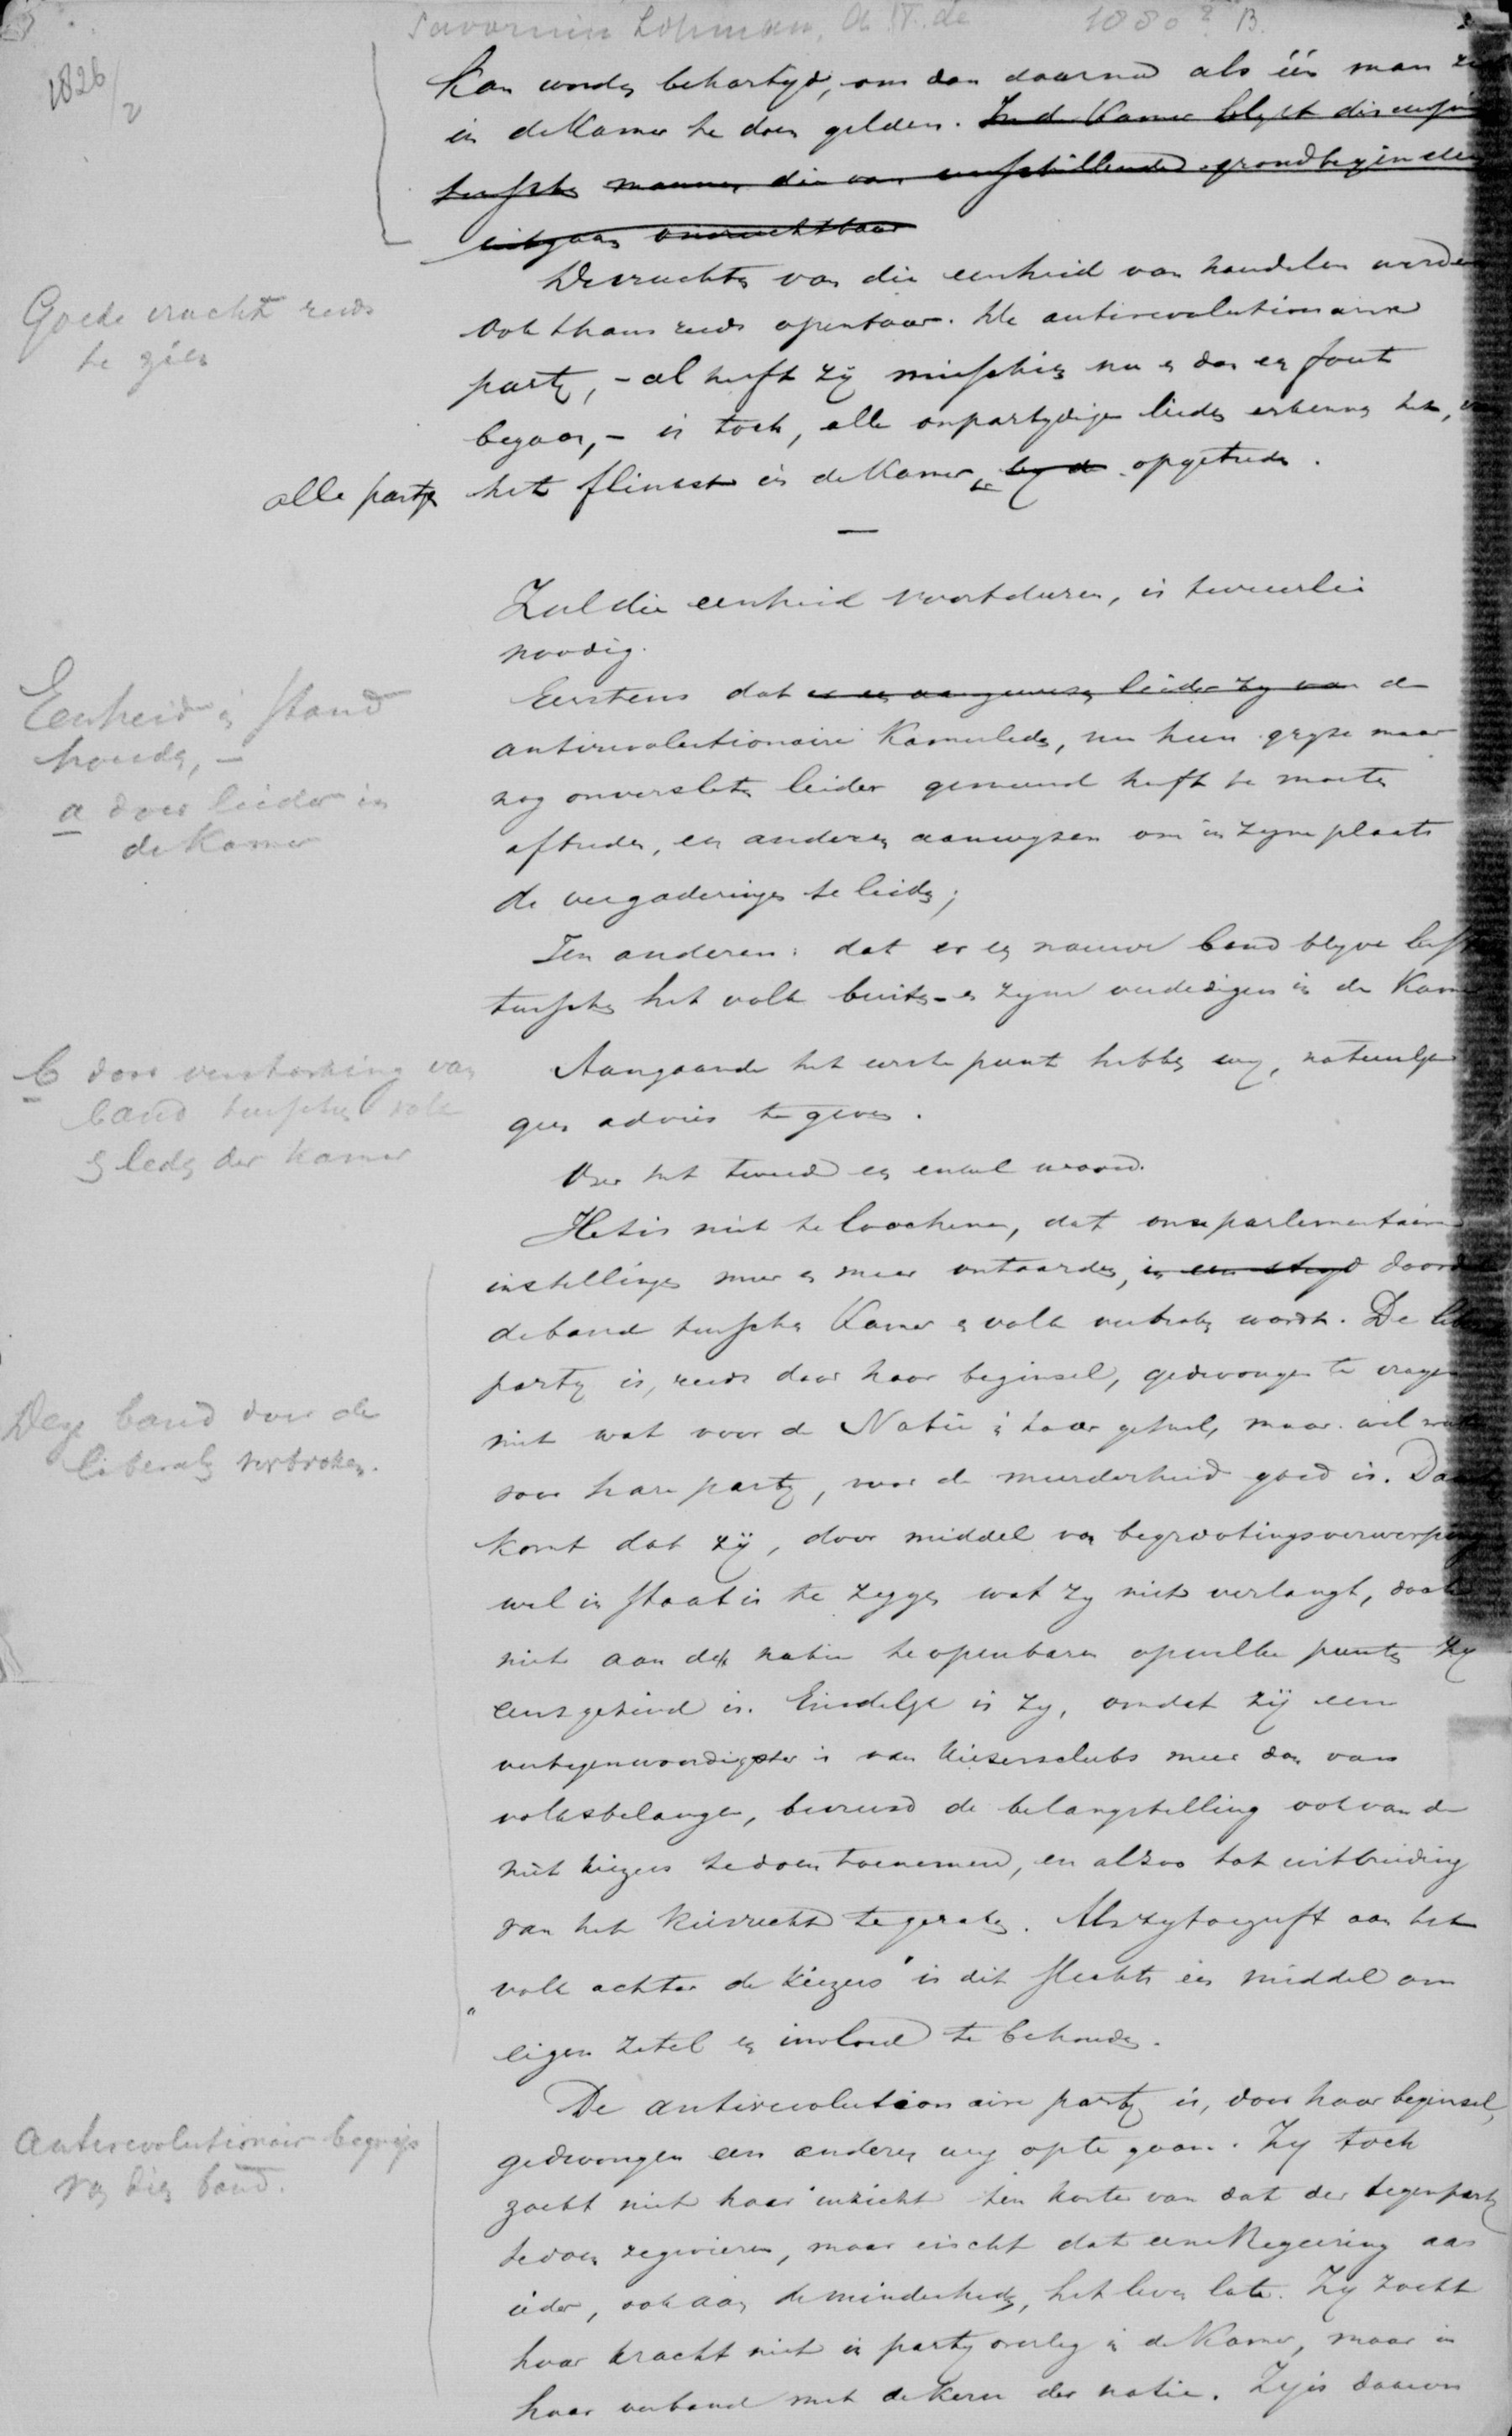 Savornin Lohman, A. F. de 1880? B.
1826/2
kan worden behartigd, om dan daarna als één man
in de Kamer te doen gelden. In de Kamer blijkt
tusschen mannen die van verschillende grondbeginselen
uitgaan onvruchtbaar
Goede vrucht reeds
te zien
De vruchten van die eenheid van handelen werden
ook thans reeds openbaar. De antirevolutionaire
party, - al heeft zij misschien nu en dan een fout
begaan, - is toch, alle onpartydige lieden erkennen het,
alle partyen het flinkst in de Kamer opgetreden.
—
Zal die eenheid voortduren, is tweeerlei
noodig.
Eenheid in stand
houden, -
a door leider in
de Kamer
Eerstens dat er een aangewezen leider zy van de
antirevolutionaire Kamerleden, nu hun gryze maar
nog onversleten leider gemeend heeft te moeten
aftreden, een anderen aanwyzen om in zyne plaats
de vergaderingen te leiden;
Ten anderen: dat er een nauwe band blyve
tusschen het volk buiten- en zyne verdedigers in de Kamer
b door versterking van
band tusschen volk
en leden der Kamer
Aangaande het eerste punt hebben wy, natuurlyk
geen advies te geven.
Over het tweede een enkel woord.
Het is niet te loochenen, dat onze parlementaire
instellingen meer en meer ontaarden, in een stryd doordat
de band tusschen Kamer en volk verbroken wordt. De
Deze band door de
liberalen verbroken.
party is, reeds door haar beginsel, gedwongen te vragen
niet wat voor de Natie in haar geheel, maar wel wat
voor hare party, voor de meerderheid goed is.
komt dat zij, door middel van begrootingsverwerping
wel in staat is te zeggen wat zy niet verlangt, doch
niet aan de natie te openbaren op welke punten zy
eensgezind is. Eindelyk is zy, omdat zij een
vertegenwoordigster is van kiezersclubs meer dan van
volksbelangen, bevreesd de belangstelling ook van de
niet kiezers te doen toenemen, en alzoo tot uitbreiding
van het kiesrecht te geraken. Als zy toegeeft aan het
"volk achter de kiezers" is dit slechts een middel om
eigen zetel en invloed te behouden.
Antirevolutionair begrip
van dien band.
De antirevolutionaire party is, door haar beginsel,
gedwongen een anderen weg op te gaan. Zy toch
zoekt niet haar inzicht ten koste van dat der tegenparty
te doen zegevieren, maar eischt dat eene Regeering aan
ieder, ook aan de minderheden, het leven late. Zy zoekt
haar kracht niet in party overleg in de Kamer, maar in
haar verband met de kern der natie. Zy is daarom